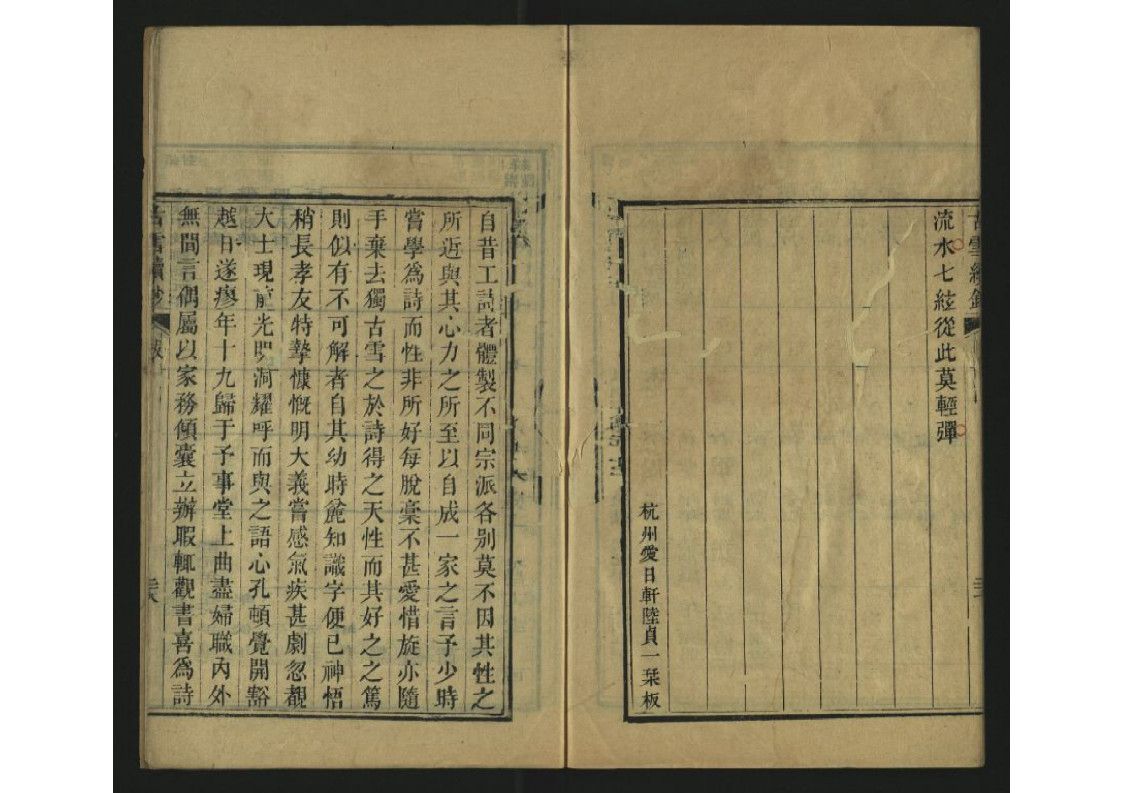 古雪續鈔
流水七絃從此莫輕彈
杭州愛日軒陸貞一栞板
自昔工詩者體製不同宗派各別莫不因其性之
所近與其心力之所至以自成一家之言予少時
嘗學爲詩而性非所好每脫稾不甚愛惜旋亦隨
手棄去獨古雪之於詩得之天性而其好之之篤
則似有不可解者自其幼時麄知識字便已神悟
稍長孝友特摯慷慨明大義嘗感氣疾甚劇忽覩
大士現前光照洞耀呼而與之語心孔頓覺開豁
越日遂瘳年十九歸于予事堂上曲盡婦職內外
無間言偶屬以家務傾囊立辦暇輒觀書喜爲詩
古雪續鈔 跋